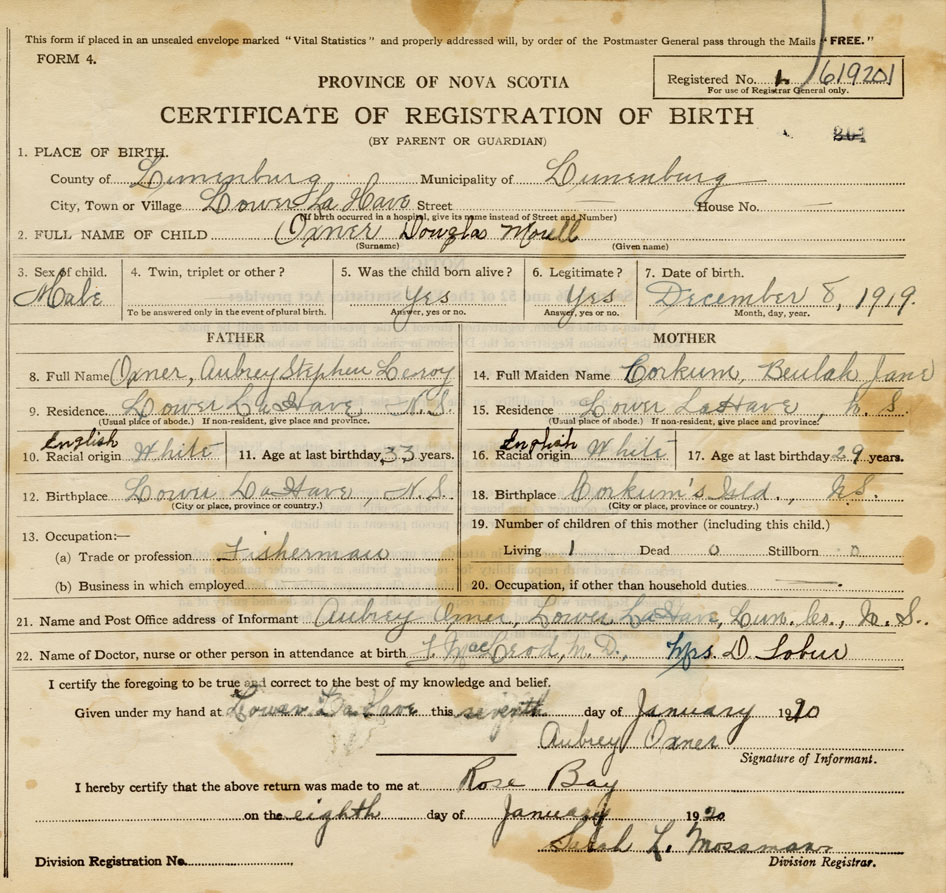 This form if placed in an unsealed envelope marked "Vital Statistics" and properly addressed will, by order of the Postmaster General pass through the Mails "FREE."
FORM 4.
PROVINCE OF NOVA SCOTIA
Registered No. 1619201
For use of Registrar General only.
CERTIFICATE OF REGISTRATION OF BIRTH
(BY PARENT OR GUARDIAN)
1. PLACE OF BIRTH.
County of Lunenburg Municipality of Lunenburg
City, Town or Village Lower La Have Street — House No. —
(If birth occurred in a hospital, give its name instead of Street and Number)
2. FULL NAME OF CHILD Oxner Douglas
(Surname) (Given name)
3. Sex of child. 4. Twin, triplet or other? 5. Was the child born alive? 6. Legitimate? 7. Date of birth.
Male Yes Yes December 8, 1919.
To be answered only in the event of plural birth. Answer, yes or no. Answer, yes or no. Month, day, year.
FATHER MOTHER
8. Full Name Oxner, Aubrey Stephen Leroy 14. Full Maiden Name Corkum, Beulah Jane
9. Residence Lower LaHave, N.S. 15. Residence Lower LaHave, N.S.
(Usual place of abode.) If non-resident, give place and province. (Usual place of abode.) If non-resident, give place and province.
English English
10. Racial origin White 11. Age at last birthday, 33 years. 16. Racial origin White 17. Age at last birthday 29 years.
12. Birthplace Lower LaHave, N.S. 18. Birthplace Corkum's Isld., N.S.
(City or place, province or country.) (City or place, province or country.)
13. Occupation:— 19. Number of children of this mother (including this child.)
(a) Trade or profession Fisherman Living 1 Dead 0 Stillborn 0
(b) Business in which employed 20. Occupation, if other than household duties —
21. Name and Post Office address of Informant Aubrey Oxner, Lower LaHave, Lun. Co., N.S.
22. Name of Doctor, nurse or other person in attendance at birth MacLeod, M.D., Mrs. D.
I certify the foregoing to be true and correct to the best of my knowledge and belief.
Given under my hand at Lower LaHave this seventh day of January 1920
Aubrey Oxner
Signature of Informant.
I hereby certify that the above return was made to me at Rose Bay
on the eighth day of January 1920
Sarah L. Mossman
Division Registration No. Division Registrar.